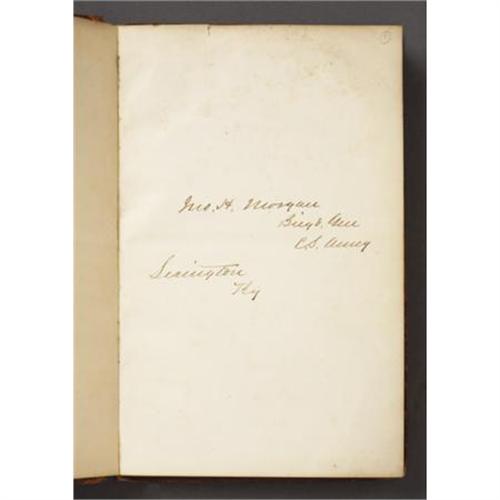 Jno. H. Morgan
Brig. Gen
C.S. Army
Lexington
Ky